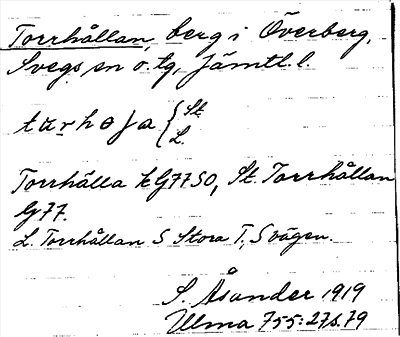 Torrhållan, berg i Överberg,
Svegs sn o. tg, Jämtl. l.
tarhoja { St.
L.
Torrhålla kG7750, St. Torrhållan
G77.
L. Torrhållan S Stora T., S vägen.
S. Åsander 1919
Ulma 755:27 s. 79